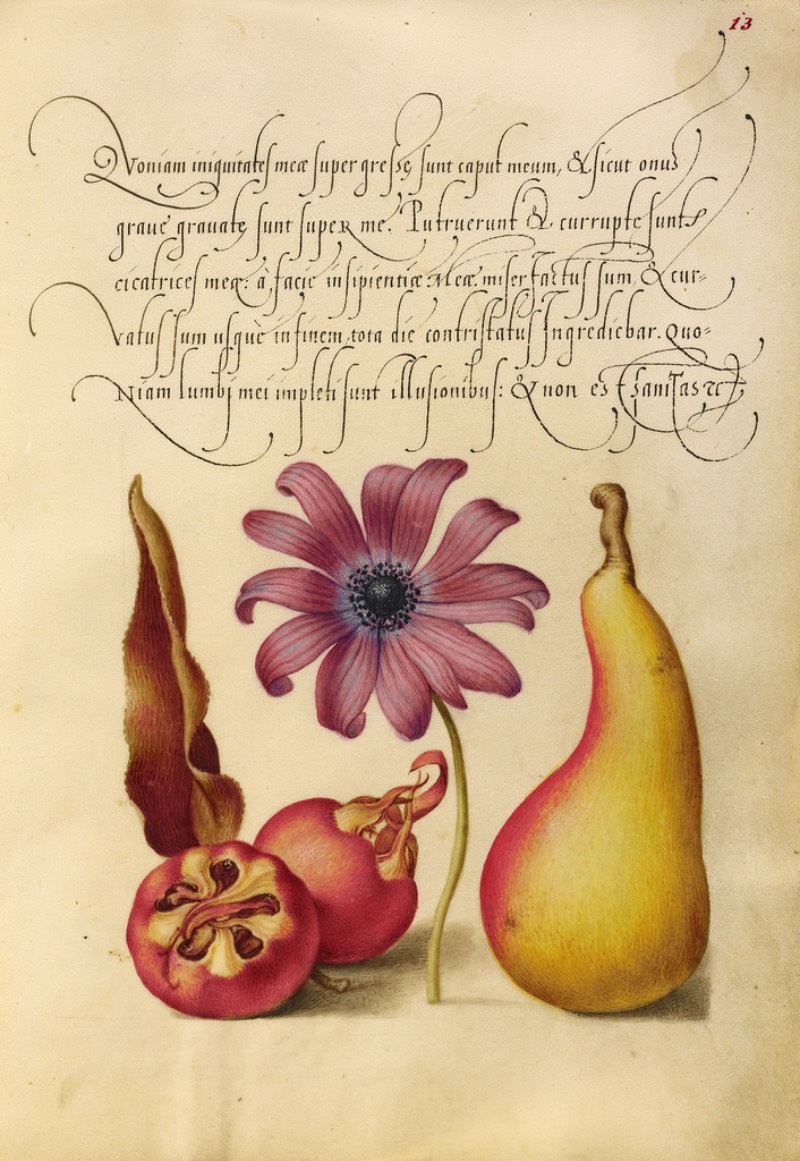 13
Quoniam iniquitates meæ supergressę sunt caput meum, & sicut onus
graue grauatę sunt super me. Putruerunt & currupte sunt
cicatrices meę: à facie insipientiæ Meæ. miser factus sum, & cur=
Vatus sum usquè in finem, tota die contristatus Ingrediebar. Quo=
Niam lumbj mei impleti sunt illusionibus: & non est sanitas &c